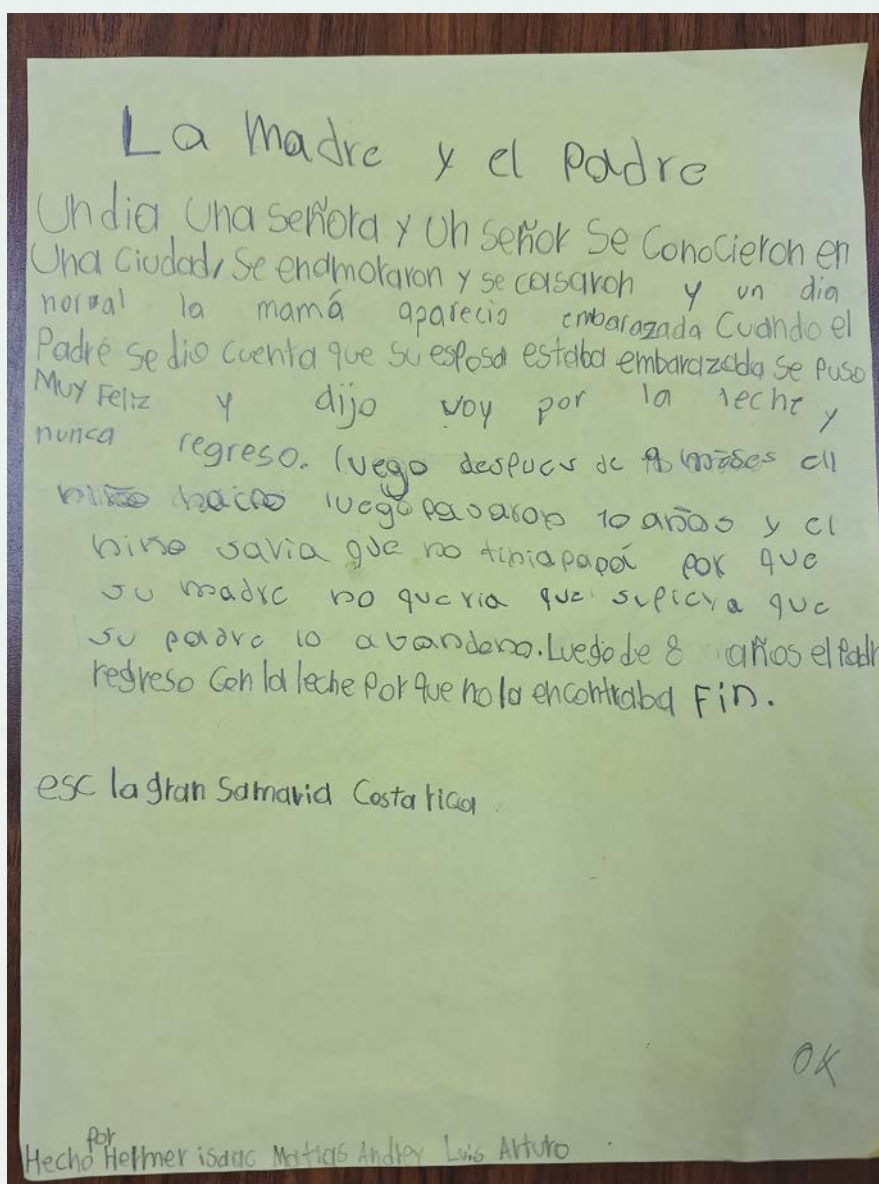 La Madre y el Padre
Un dia Una señora y Un señor Se Conocieron en
Una Ciudad, Se enamoraron y se casaron y un dia
normal la mamá aparecio embarazada Cuando el
Padre se dio cuenta que su esposa estaba embarazada se Puso
Muy Feliz y dijo voy por la leche y
nunca regreso. luego despues de meses el
niño nacio luego pasaron 10 años y el
niño savia que no tinia papá por que
su madre no queria que supiera que
su padre lo abandono. Luego de 8 años el Padr
regreso Con la leche Por que no la encontraba Fin.
esc la gran Samaria Costa rica
OK
por
Hecho Helmer isaac Matias Andrey Luis Arturo